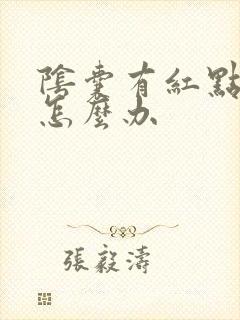 陰囊有紅點
怎麼办
張毅濤